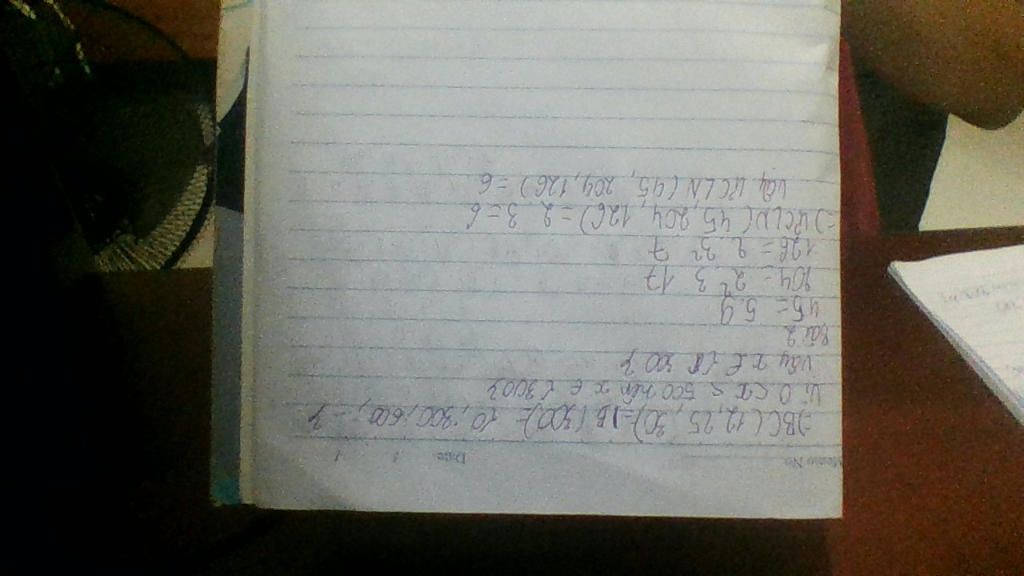 Memo No.
Date / /
=) BC(12, 25, 30) = B(300) = {0, 300, 600, ...}
Vì 0 < x < 500 nên x ∈ {300}
Vậy x ∈ { 300}
Bài 2
45 = 5.9
204 = 2² 3 17
126 = 2 3² 7
=) ƯCLN(45 204 126) = 2 3 = 6
Vậy ƯCLN(45, 204, 126) = 6